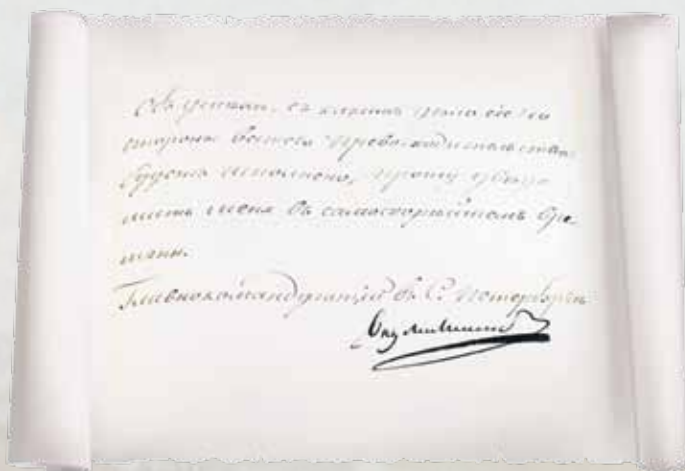 съ какимъ дѣло сіе со
стороны Вашего Превосходительства
будетъ исполнено, прошу увѣдо
мить меня въ самоскорѣйшемъ вре-
мени.
Главнокомандующій въ С. Петербургѣ